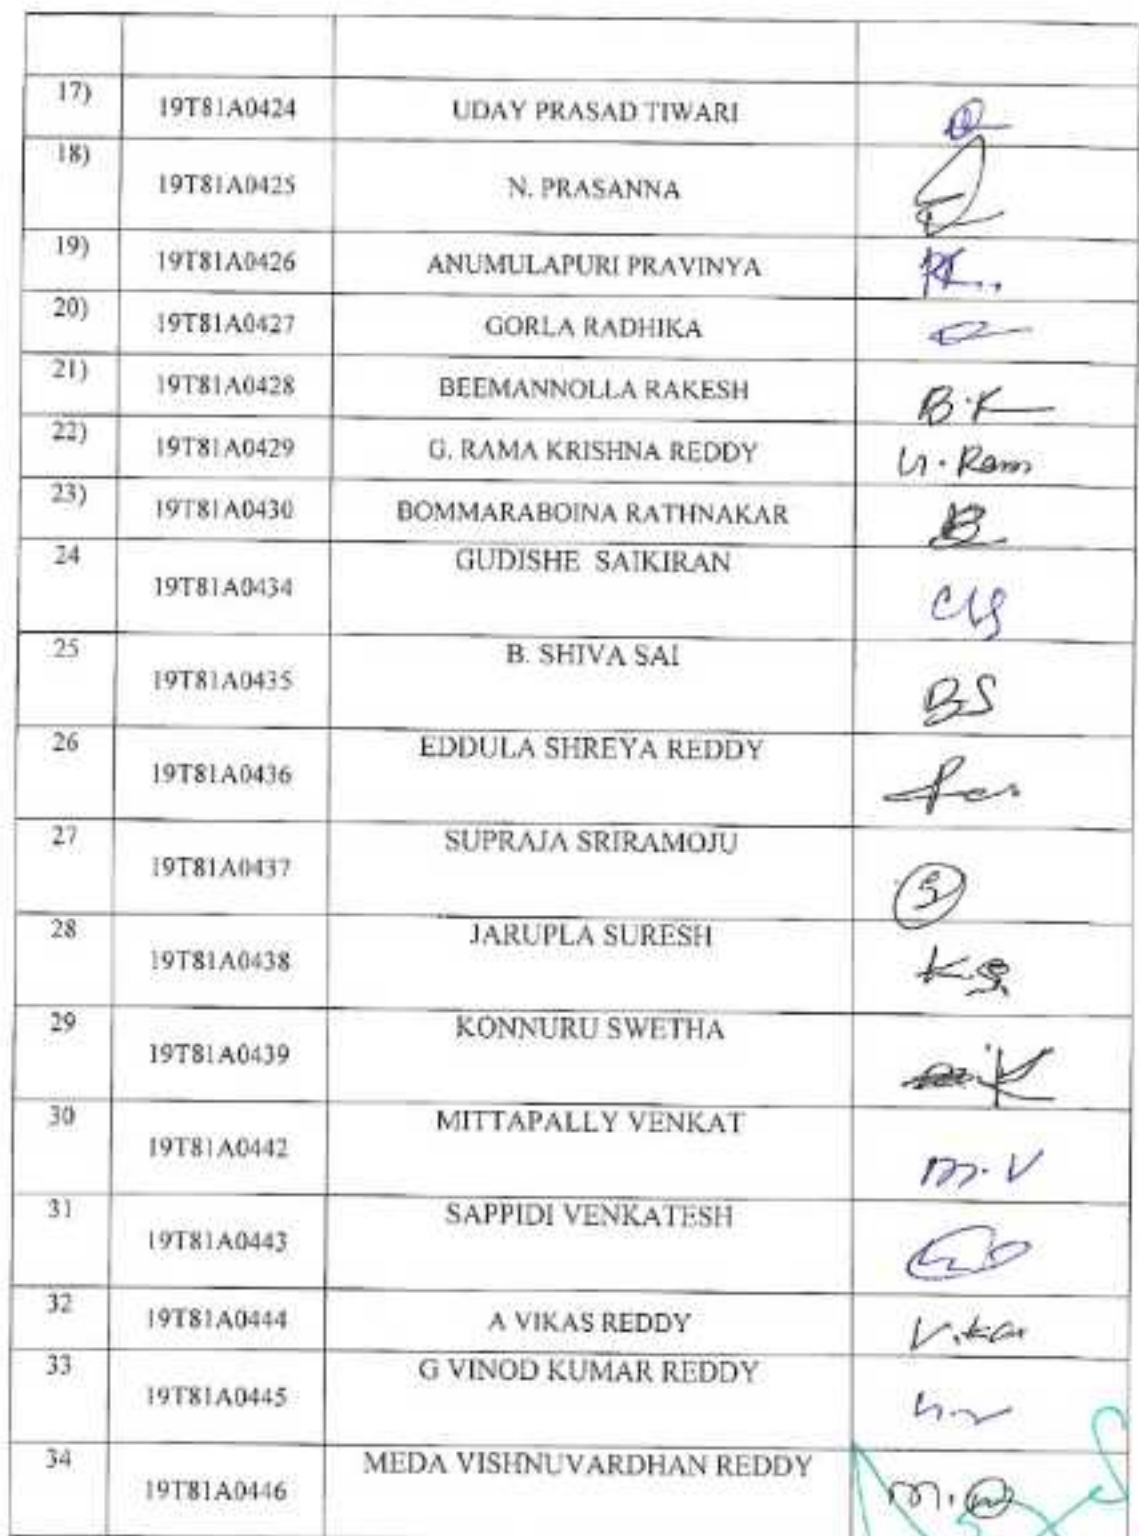 17) 19T81A0424 UDAY PRASAD TIWARI
18) 19T81A0425 N. PRASANNA
19) 19T81A0426 ANUMULAPURI PRAVINYA
20) 19T81A0427 GORLA RADHIKA
21) 19T81A0428 BEEMANNOLLA RAKESH
22) 19T81A0429 G. RAMA KRISHNA REDDY
23) 19T81A0430 BOMMARABOINA RATHNAKAR
24 19T81A0434 GUDISHE SAIKIRAN
25 19T81A0435 B. SHIVA SAI BS
26 19T81A0436 EDDULA SHREYA REDDY
27 19T81A0437 SUPRAJA SRIRAMOJU
28 19T81A0438 JARUPLA SURESH
29 19T81A0439 KONNURU SWETHA
30 19T81A0442 MITTAPALLY VENKAT m.v
31 19T81A0443 SAPPIDI VENKATESH
32 19T81A0444 A VIKAS REDDY
33 19T81A0445 G VINOD KUMAR REDDY
34 19T81A0446 MEDA VISHNUVARDHAN REDDY